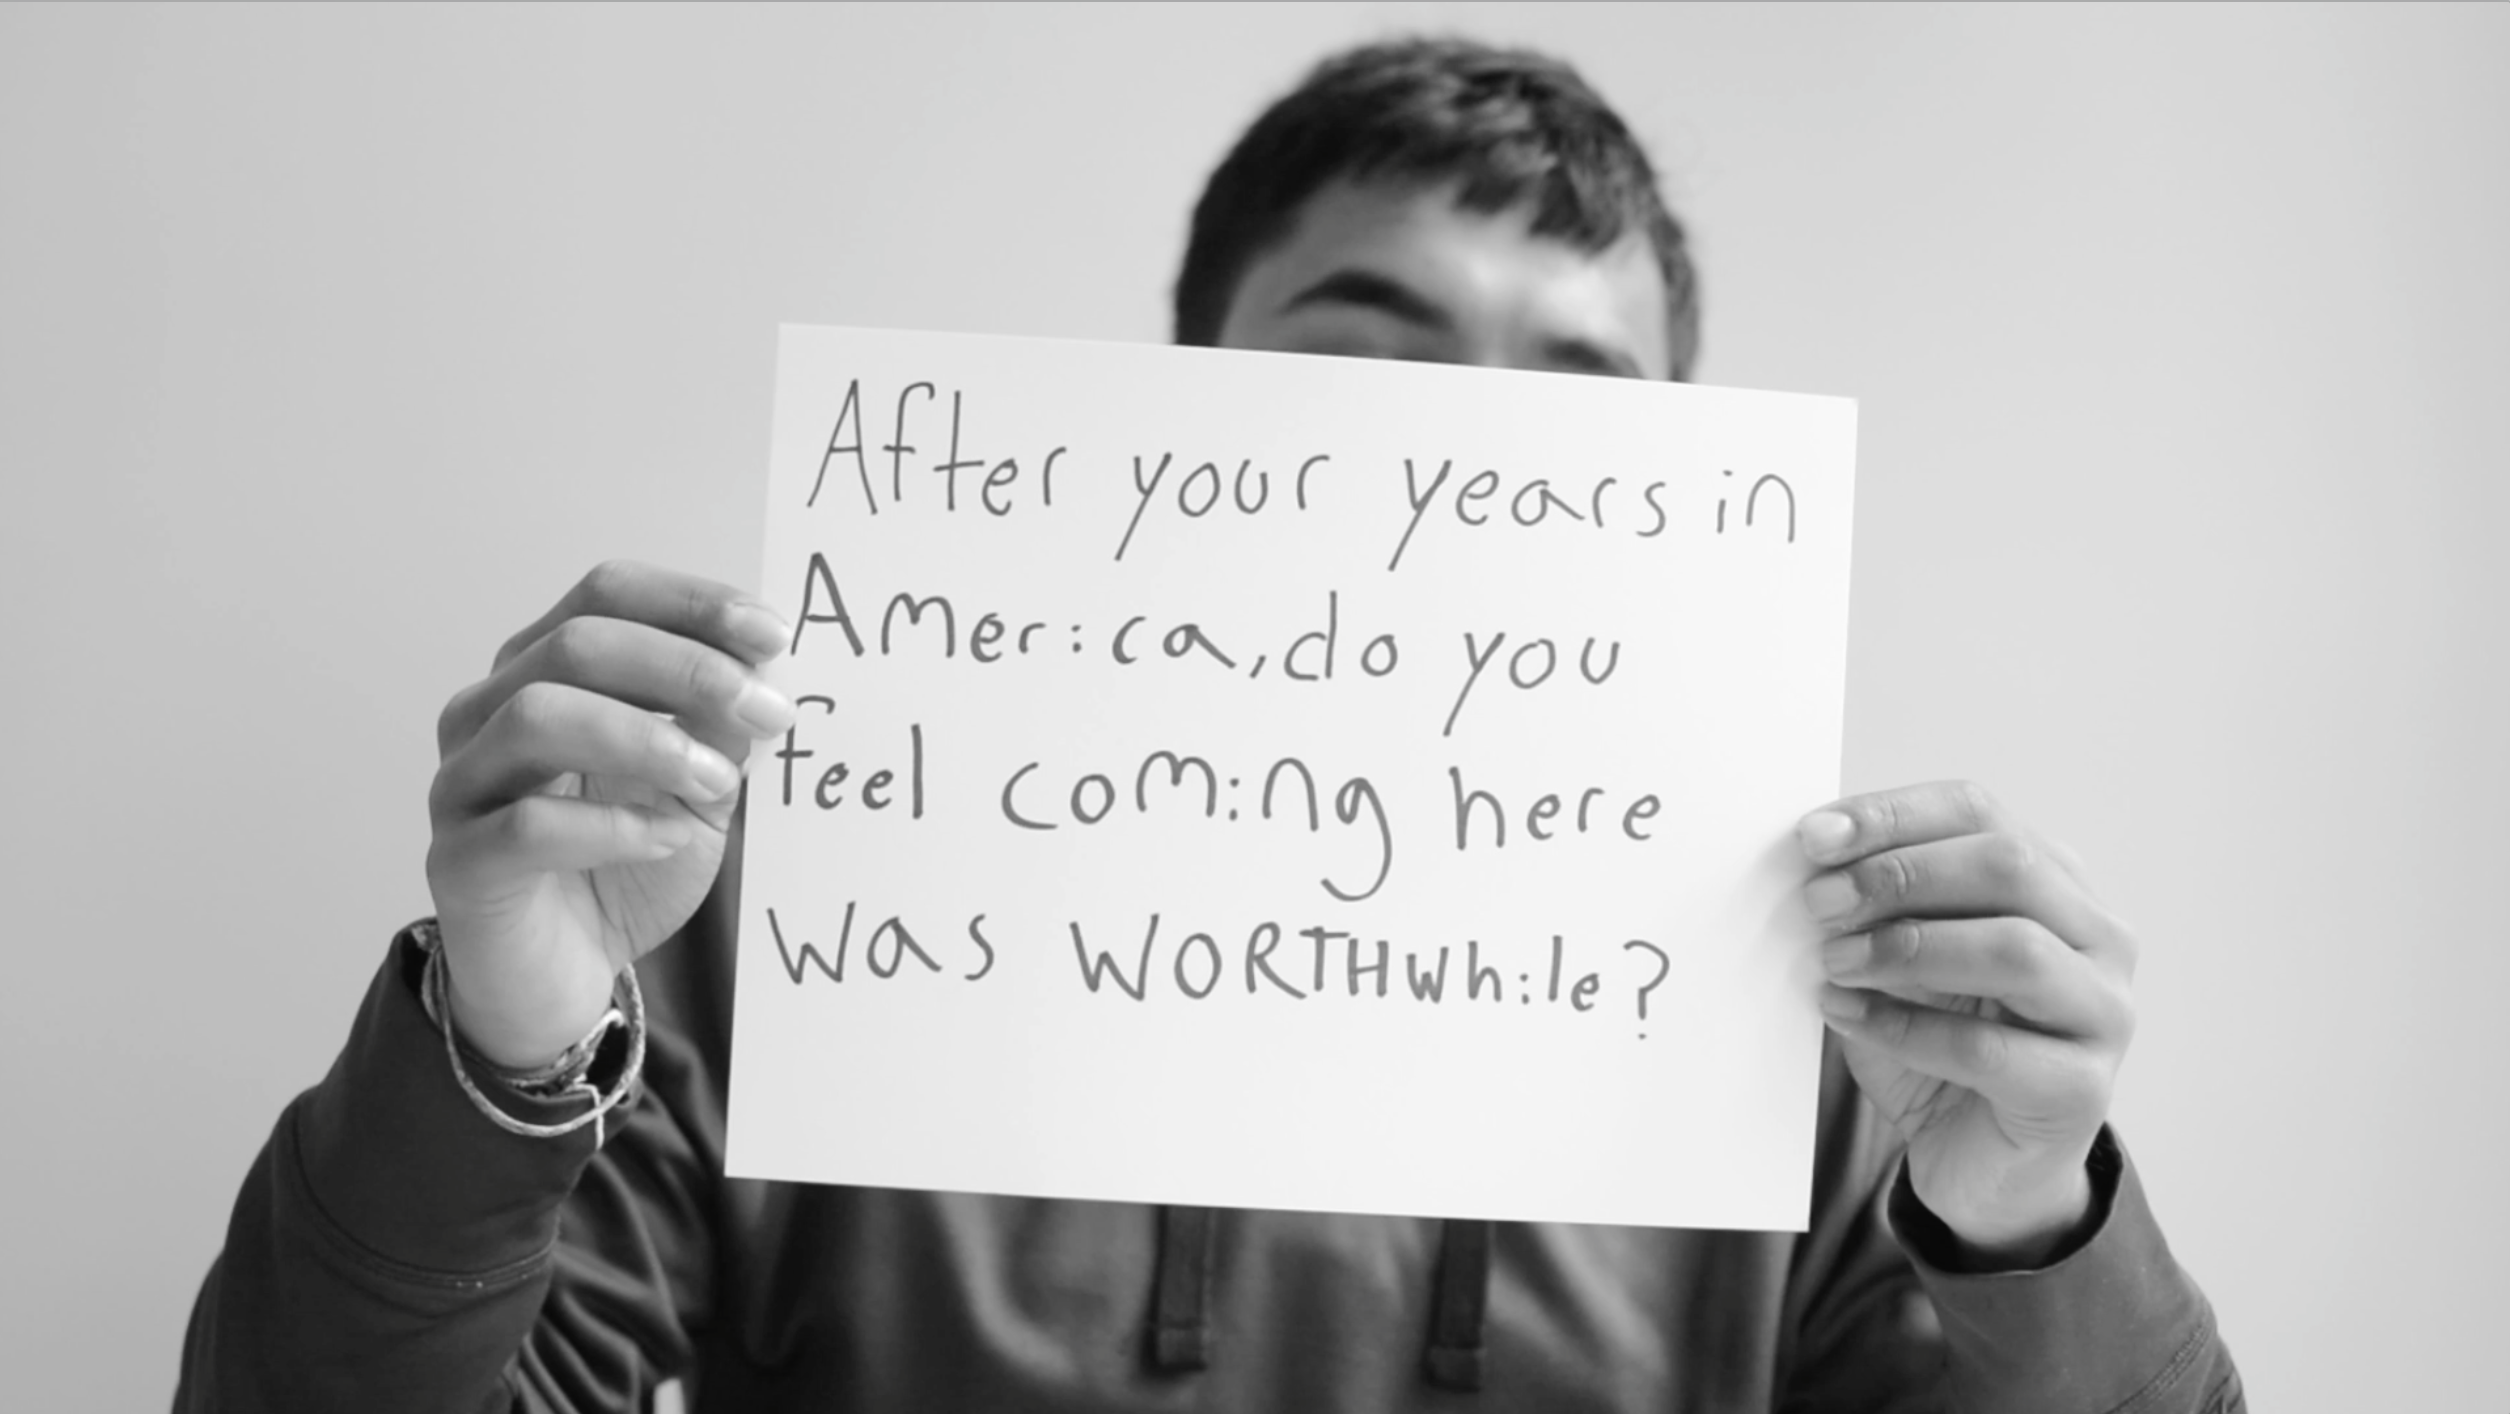 After your years in
America, do you
feel coming here
was WORTHwhile?